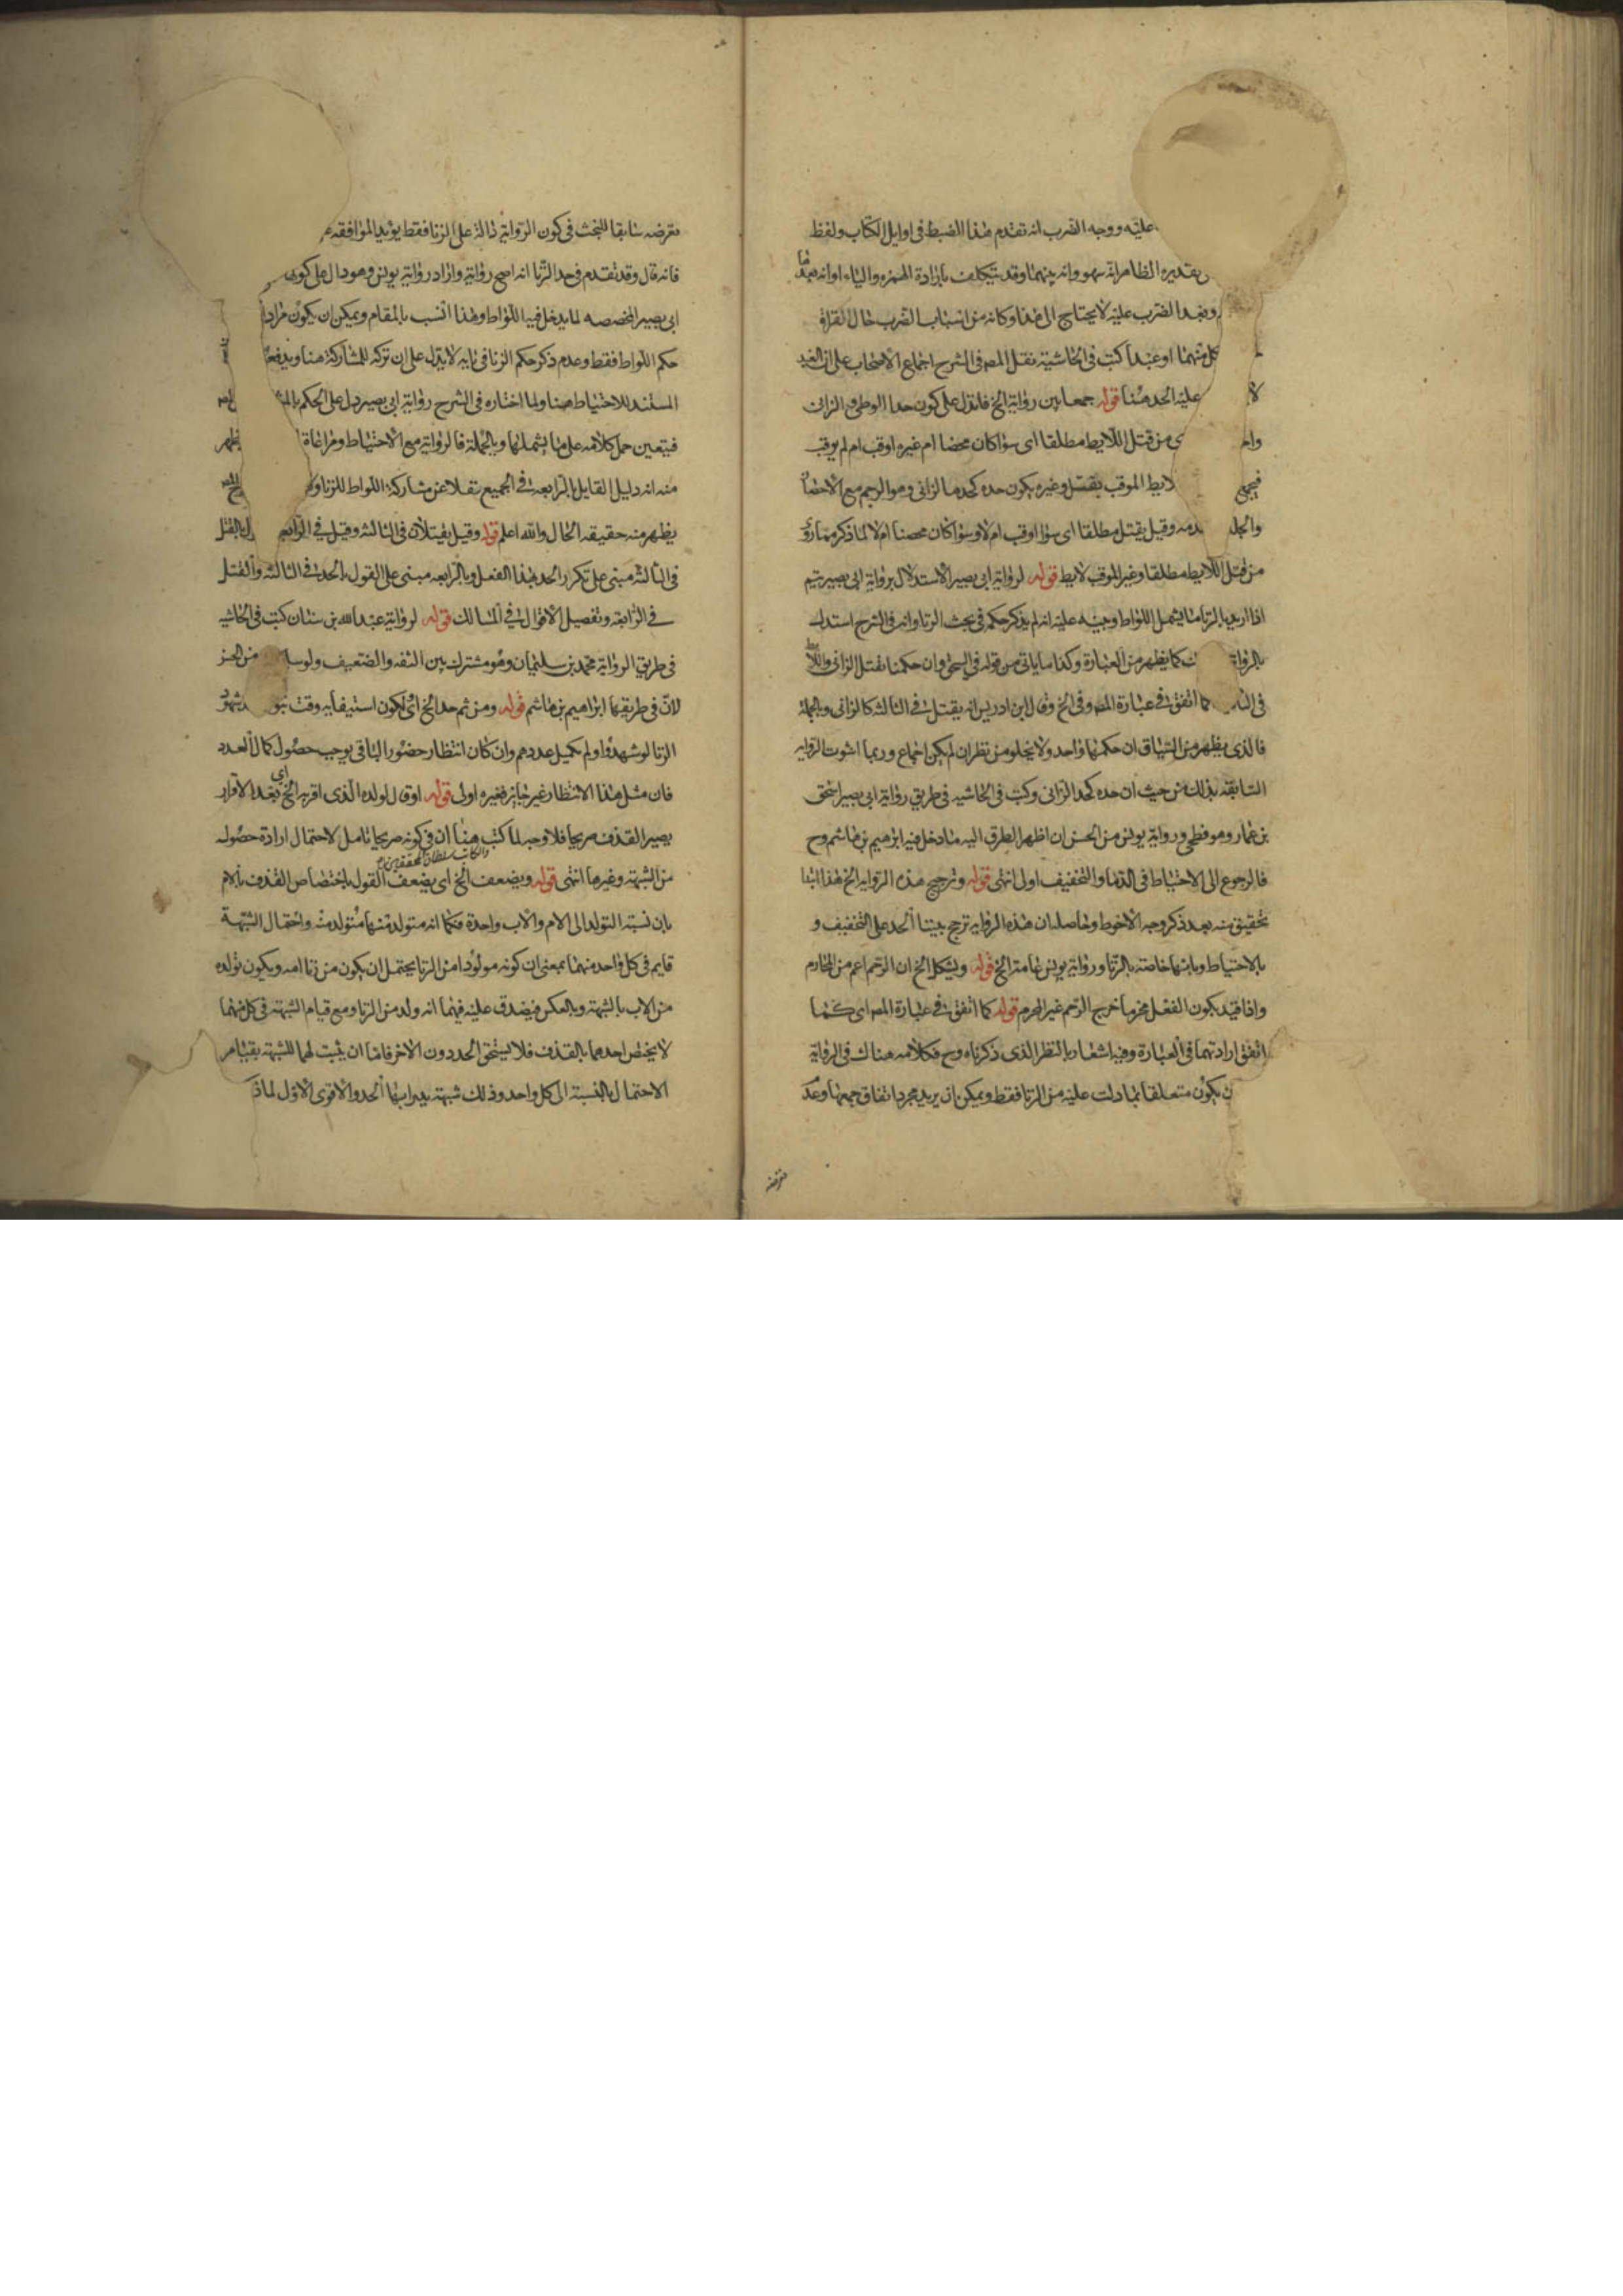 عليه ووجه القرب انه تقدم هذا الضبط فى اوايل الكتاب ولفظ
تقديره الظاهر انه سهو وانه بينهما وقد يتكلف بارادة الهمزه والتاء او انه بعدها
وبعد القرب عليه لا يحتاج الى هذا وكانه من اسباب القرب حال القراة
كل منهما او عبدا كتب فى الحاشية نقل المصـ فى الشرح اجماع الاصحاب على ان العبد
لا عليه الحد هنا قوله جمعا بين رواية الخ فانه دل على كون حد الوطى الزانى
وا من قتل اللايط مطلقا اى سوا كان محصنا ام غيره اوقب ام لم يوقب
فيجمع لايط الموقب يقتل وغيره يكون حده كحد الزانى وهو الرجم مع الاحصان
والجلد مه وقيل يقتل مطلقا اى سوا اوقب ام لا وسوا كان محصنا ام لا لما ذكر مما روى
من قتل اللايط مطلقا وغير الموقب لايط قوله لرواية ابى بصير الاستدلال برواية ابى بصير يتم
اذا اريد بالزنا ما يشمل اللواط وجيه عليه انه لم يذكر حكمه فى بحث الزنا وانه فى الشرح استدل
بالرواية كما يظهر من العبارة وكذا ما ياتى من قوله فى السحق وان حكمنا بقتل الزانى واللايط
فى كما اتفق فى عبارة المصـ وفى الخ وقال ابن ادريس انه يقتل فى الثالثة كالزانى وبالجملة
فالذى يظهر من السياق ان حكمهما واحد ولا يخلو من نظر ان لم يكن اجماع وربما اشعرت الرواية
السابقة بذلك من حيث ان حده كحد الزانى وكتب فى الحاشيه فى طريق رواية ابى بصير اسحق
بن عمار وهو فطحى ورواية يونس من الحسن ان اظهر الطرق اليه ما دخل فيه ابرهيم بن هاشم وح
فالرجوع الى الاحتياط فى الدما والتخفيف اولى انتهى قوله وترجيح هذه الرواية الخ هذا ايضا
تحقيق منه بعد ذكر وجه الاحوط وحاصله ان هذه الرواية ترجح ببينا الحد على التخفيف و
بالاحتياط وبانها خاصة بالزنا ورواية يونس عامة الخ قوله ويشكل الخ ان الرحم اعم من المحارم
واذا قيد بكون الفعل محرما خرج الرحم غير المحرم قوله كما اتفق فى عبارة المصـ اى كما
اتفق ارادتهما فى العبارة وفيه اشعار بالنظر الذى ذكرناه وح فكلامه هناك فى الرواية
ن يكون متعلقا بما دلت عليه من الزنا فقط ويمكن ان يريد مجرد اتفاق جمعها وعد
تعرضه
تعرضه سابقا للبحث فى كون الرواية دالة على الزنا فقط يويد الموافقه
فانه قال وقد تقدم فى حد الزنا انه اصح رواية واراد رواية يونس وهو دال على كون
ابى بصير المخصصه لما يدخل فيه اللواط وهذا انسب بالمقام ويمكن ان يكون مراد
حكم اللواط فقط وعدم ذكر حكم الزنا فى بابه لا يدل على ان تركه للمشاركة هنا ويدفع
المستند للاحتياط هنا ولما اختاره فى الشرح رواية ابى بصير دل على الحكم
فيتعين حمل كلامه على ما يشملها وبالجملة فالرواية مع الاحتياط ومراعاة يظهر
منه انه دليل القايل بالرابعة فى الجميع نقلا عن مشاركة اللواط للزنا
يظهر منه حقيقه الحال والله اعلم قوله وقيل يقتلان فى الثالثه وقيل فى الرابعه بالقتل
فى الثالثة مبنى على تكرر الحد بهذا الفعل وبالرابعه مبنى على القول بالحد فى الثالثه والقتل
فى الرابعه وتفصيل الاقوال فى المسالك قوله لرواية عبد الله بن سنان كتب فى الحاشيه
فى طريق الرواية محمد بن سليمان وهو مشترك بين الثقه والضعيف ولو من الحسن
لان فى طريقها ابراهيم بن هاشم قوله ومن ثم حد الخ اى لكون استيفايه وقت شهود
الزنا لو شهدوا ولم يكمل عددهم وان كان انتظار حضور الباقى يوجب حصول كمال العدد
فان مثل هذا الانتظار غير جايز فغيره اولى قوله او قال لولده الذى اقر به الخ اى بعد الاقرار
يصير القذف صريحا فلا وجه لما كتب هنا ان فى كونه صريحا تامل لاحتمال ارادة حصوله
والكاتب سلطان المحققين
من الشبهة وغيرها انتهى قوله ويضعف الخ اى يضعف القول باختصاص القذف بالام
بان نسبة التولد الى الام والاب واحدة فكما انه متولد منها متولد منه واحتمال الشبهة
قايم فى كل واحد منهما بمعنى ان كونه مولودا من الزنا يحتمل ان يكون من زنا امه ويكون تولده
من الاب بالشبهة وبالعكس فيصدق عليه فيهما انه ولد من الزنا ومع قيام الشبهه فى كل منهما
لا يختص احدهما بالقذف فلا يستحق الحد دون الاخر فاما ان يثبت لهما للشبهة بقيام
الاحتمال بالنسبة الى كل واحد وذلك شبهة يدرا بها الحد والاقوى الاول لما ذكر